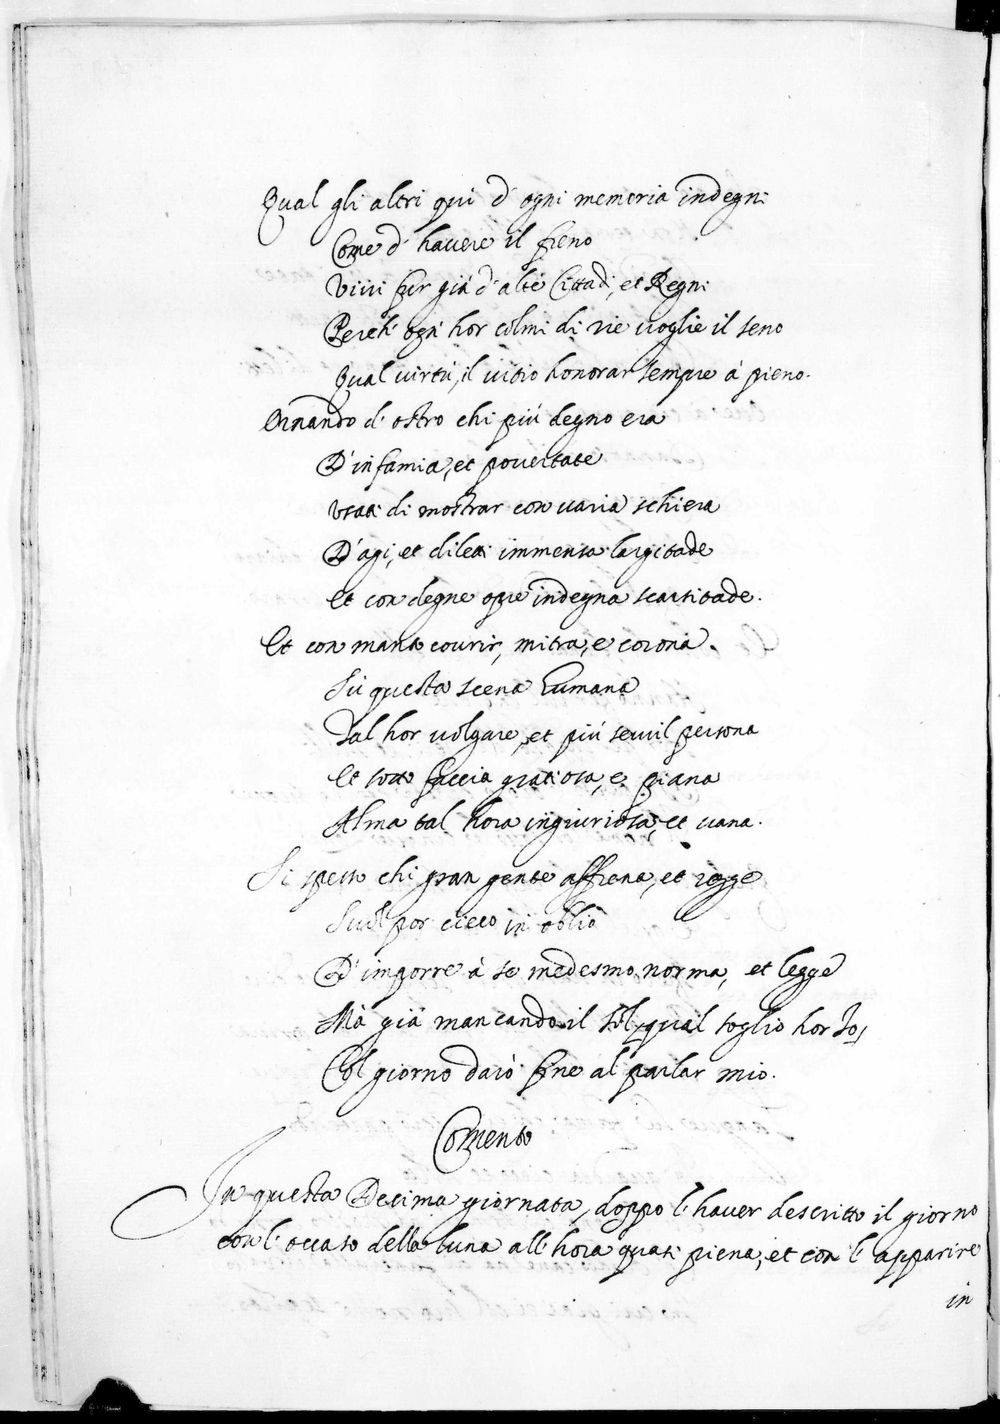 Qual gli altri qui d' ogni memoria indegni
Come d' hauere il freno
Viui fur già d' alte Cittadi, et Regni
Perch' ogn' hor colmi di rie uoglie il seno
Qual uirtù, il uitio honorar sempre à pieno.
Ornando d' ostro chi più degno era
D' infamia, et pouertate
Usati di mostrar con uaria schiera
D' agi, et diletti immensa largitade
Et con degne opre indegna scarsitade.
Et con manto courir, mitra, e corona
Sù questa scena humana
Tal hor uolgare, et più seruil persona
Et sotto faccia gratiosa, e piana
Alma tal hora ingiuriosa, et uana.
Si spesso chi gran gente affrena, et regge
Suol por cieco in oblio
D' imporre à se medesmo norma, et legge
Mà già mancando il Sol, qual soglio hor Io,
Col giorno darò fine al parlar mio.
Comento
In questa Decima giornata, doppo l' hauer descritto il giorno
con l' occaso della luna all' hora quasi piena, et con l' apparire
in